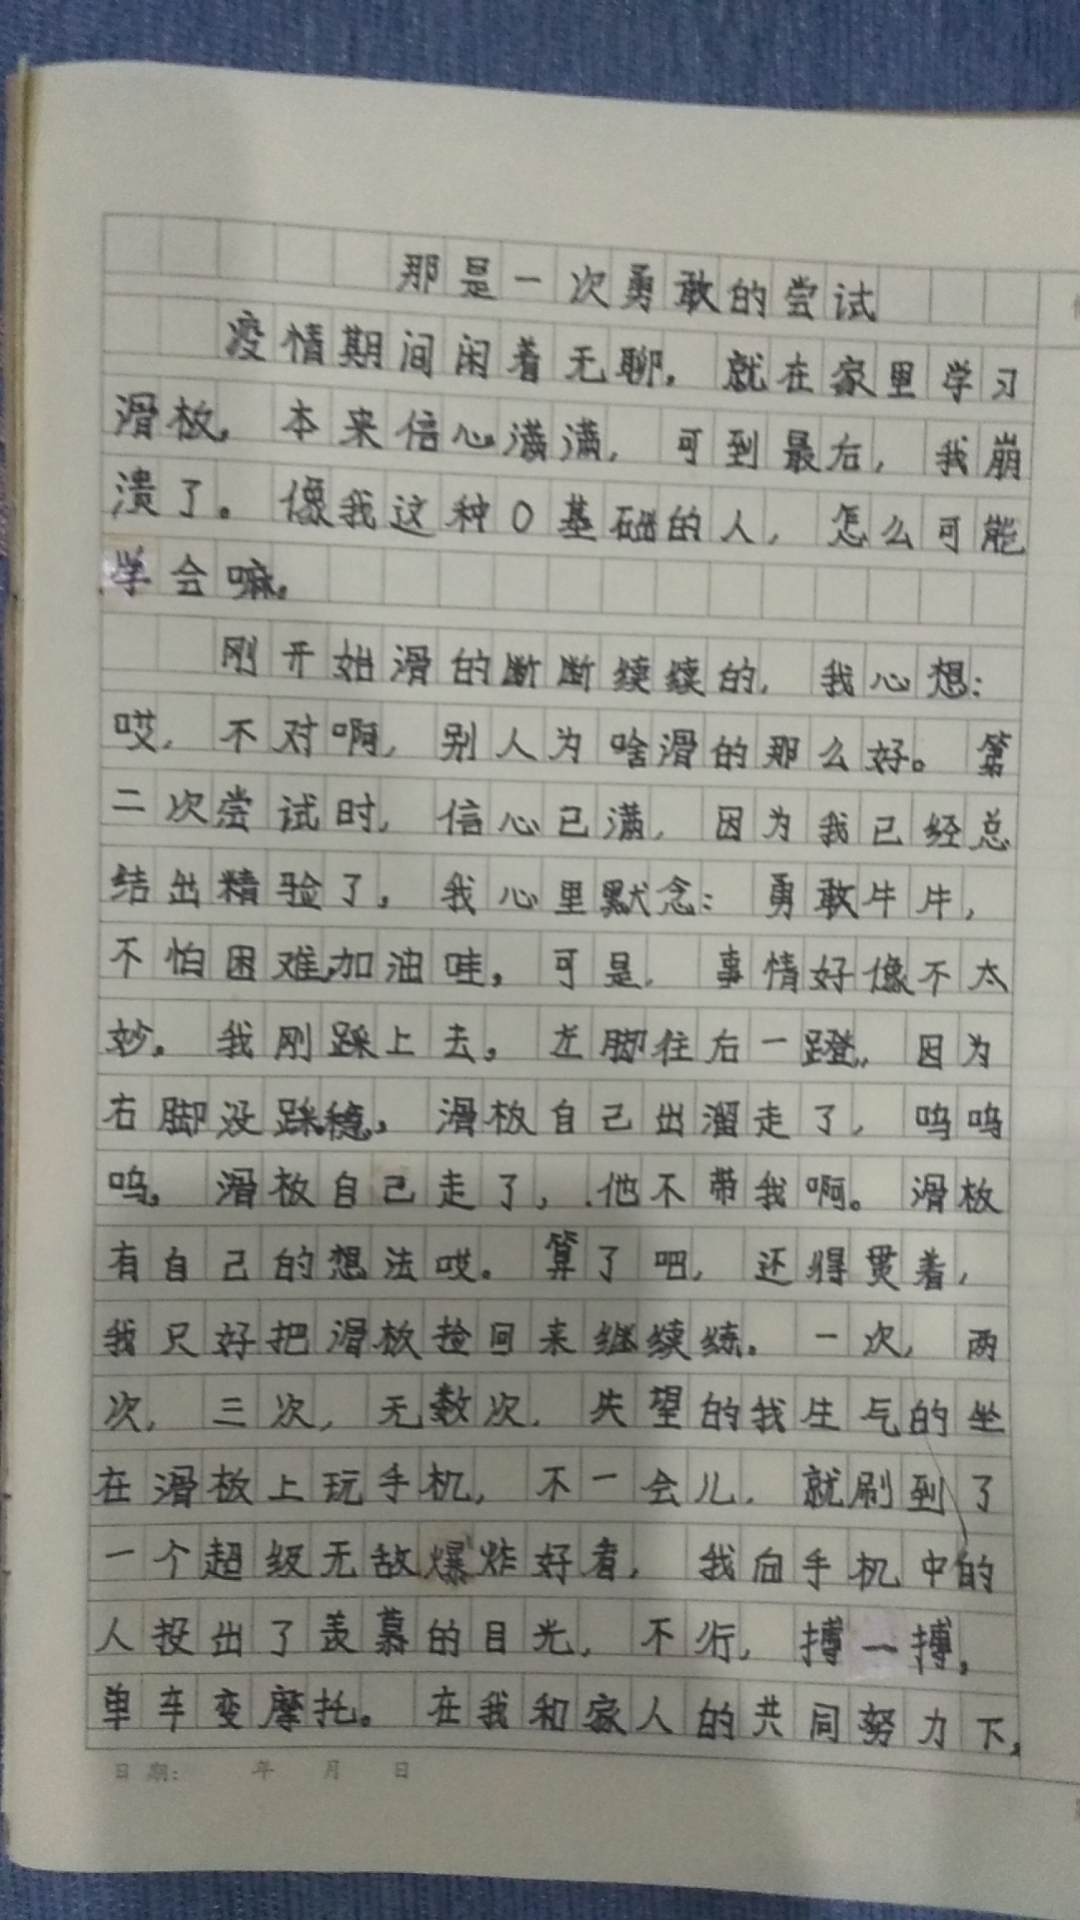 那是一次勇敢的尝试
疫情期间闲着无聊，就在家里学习
滑板，本来信心满满，可到最后，我崩
溃了。像我这种0基础的人，怎么可能
学会嘛。
刚开始滑的断断续续的，我心想：
哎，不对啊，别人为啥滑的那么好。第
二次尝试时，信心已满，因为我已经总
结出精验了，我心里默念：勇敢牛牛，
不怕困难，加油哇，可是，事情好像不太
妙。我刚踩上去，左脚往后一蹬，因为
右脚没踩穗，滑板自己出溜走了，呜呜
呜，滑板自己走了，他不带我啊。滑板
有自己的想法哎。算了吧，还得贯着，
我只好把滑板捡回来继续练。一次，两
次，三次，无数次，失望的我生气的坐
在滑板上玩手机，不一会儿，就刷到了
一个超级无敌爆炸好者，我向手机中的
人投出了羡慕的目光，不行，搏一搏，
单车变摩托。在我和家人的共同努力下，
日期： 年 月 日